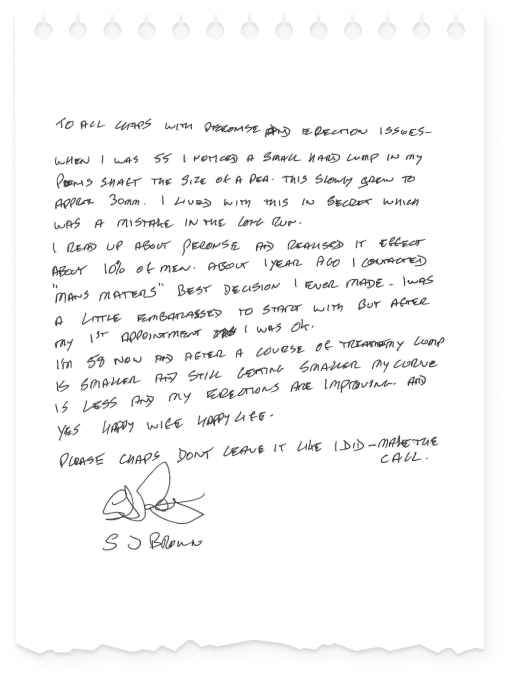 TO ALL CHAPS WITH PERONSE AND ERECTION ISSUES-
WHEN I WAS 55 I NOTICED A SMALL HARD LUMP IN MY
PENIS SHAFT THE SIZE OF A PEA. THIS SLOWLY GREW TO
APPROX 30mm. I LIVED WITH THIS IN SECRET WHICH
WAS A MISTAKE IN THE LONG RUN.
I READ UP ABOUT PERONSE AND REALISED IT EFFECT
ABOUT 10% OF MEN. ABOUT 1 YEAR AGO I CONTACTED
"MANS MATERS" BEST DECISION I EVER MADE - I WAS
A LITTLE EMBARASSED TO START WITH BUT AFTER
MY 1ST APPOINTMENT I WAS OK.
I'M 58 NOW AND AFTER A COURSE OF MY LUMP
IS SMALLER AND STILL GETTING SMALLER MY CURVE
IS LESS AND MY ERECTIONS ARE IMPROVING. AND
YES HAPPY WIFE HAPPY LIFE.
PLEASE CHAPS DONT LEAVE IT LIKE I DID - MAKE THE
CALL.
S J BROWN